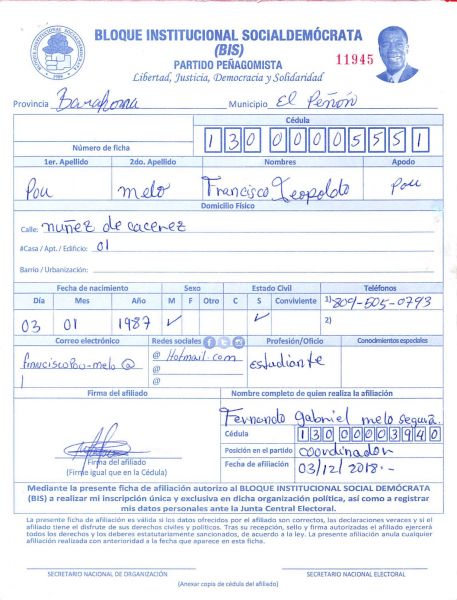 BLOQUE INSTITUCIONAL SOCIALDEMÓCRATA
(BIS)
PARTIDO PEÑAGOMISTA
Libertad, Justicia, Democracia y Solidaridad
11945
Provincia Barahona Municipio El Peñón
Cédula
Número de ficha 13000005551
1er. Apellido 2do. Apellido Nombres Apodo
Pou melo Francisco Leopoldo Pou
Domicilio Físico
Calle: nuñez de cacerez
#Casa / Apt. / Edificio: 01
Barrio / Urbanización:
Fecha de nacimiento Sexo Estado Civil Teléfonos
Día Mes Año M F Otro C S Conviviente 1) 809-505-0793
03 01 1987 ✓ ✓ 2)
Correo electrónico Redes sociales Profesión/Oficio Conocimientos especiales
franciscoPou-melo @ @ Hotmail.com estudiante
@
@
Firma del afiliado Nombre completo de quien realiza la afiliación
Fernando gabriel melo segura.
Cédula 13000003940
Posición en el partido coordinador
Firma del afiliado
(Firme igual que en la Cédula)
Fecha de afiliación 03/12/2018.-
Mediante la presente ficha de afiliación autorizo al BLOQUE INSTITUCIONAL SOCIAL DEMÓCRATA
(BIS) a realizar mi inscripción única y exclusiva en dicha organización política, así como a registrar
mis datos personales ante la Junta Central Electoral.
La presente ficha de afiliación es válida si los datos ofrecidos por el afiliado son correctos, las declaraciones veraces y si el
afiliado tiene el disfrute de sus derechos civiles y políticos. Tras su recepción, sello y firma autorizados el afiliado ejercerá
todos los derechos y los deberes estatutariamente sancionados, de acuerdo a la ley. La presente afiliación anula cualquier
afiliación realizada con anterioridad a la fecha que aparece en esta ficha.
SECRETARIO NACIONAL DE ORGANIZACIÓN SECRETARIO NACIONAL ELECTORAL
(Anexar copia de cédula del afiliado)